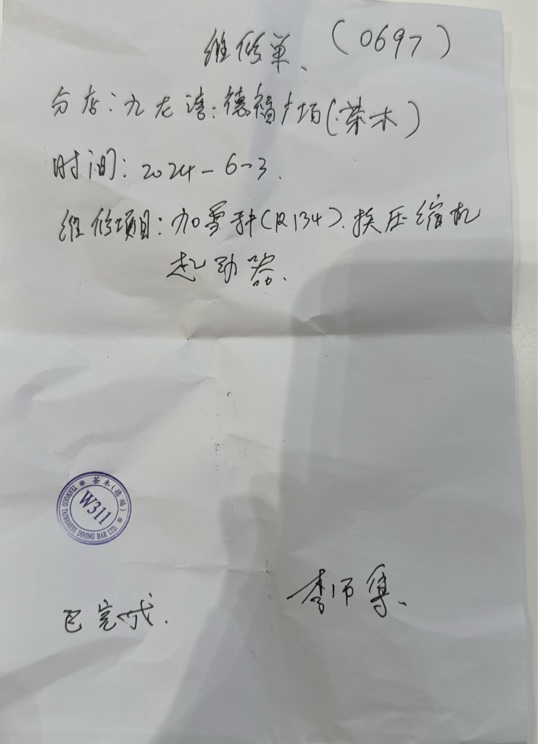 维修单、(0697)
分店:九龙湾:德福广场(茶木)
时间:2024-6-3.
维修项目:加雪种(R134).换压缩机
起动器.
茶木(德福)
W311
TAIWANESE DINING BAR LTD.
已完成.
李师傅、